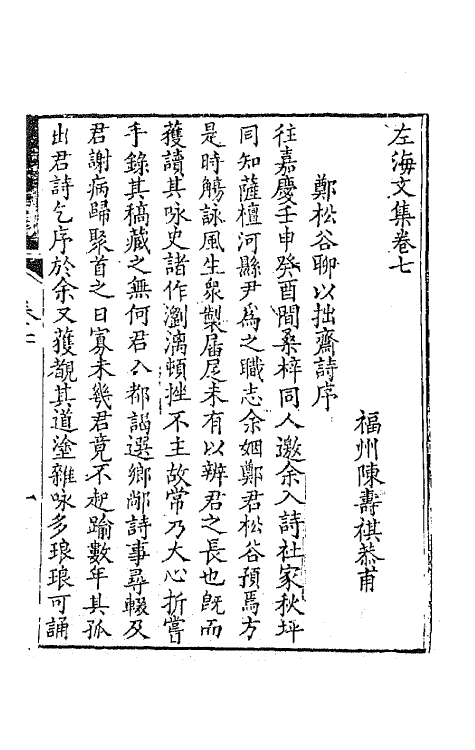 左海文集卷七
福州陳壽祺恭甫
鄭松谷聊以拙齋詩序
往嘉慶壬申癸酉間桑梓同人邀余入詩社家秋坪
同知薩檀河縣尹爲之職志余姻鄭君松谷預焉方
是時觴詠風生衆製屇尾未有以辨君之長也旣而
獲讀其咏史諸作瀏漓頓挫不主故常乃大心折嘗
手錄其稿藏之無何君入都謁選鄉鄰詩事尋輟及
君謝病歸聚首之日寡未幾君竟不起踰數年其孤
出君詩乞序於余又獲覩其道塗雜咏多琅琅可誦